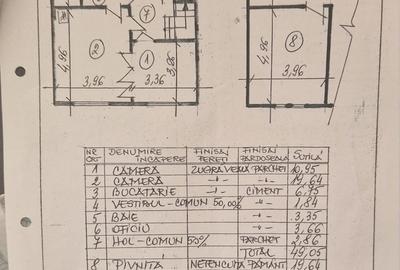 7
2
1
4,96
3,96
3,36
3,86
8
4,96
3,96
NR CRT DENUMIRE ÎNCĂPERE FINISAJ PEREȚI FINISAJ PARDOSEALĂ S.UTILĂ
1 CAMERĂ ZUGRĂVEALĂ PARCHET 10,95
2 CAMERĂ -"- -"- 19,64
3 BUCĂTĂRIE -"- CIMENT 6,75
4 VESTIBUL-COMUN 50,00% -"- 1,84
5 BAIE -"- 3,35
6 OFICIU -"- 3,66
7 HOL-COMUN 50% PARCHET 2,86
TOTAL 49,05
8 PIVNIȚĂ NETENCUITĂ PĂMÂNT 19,64